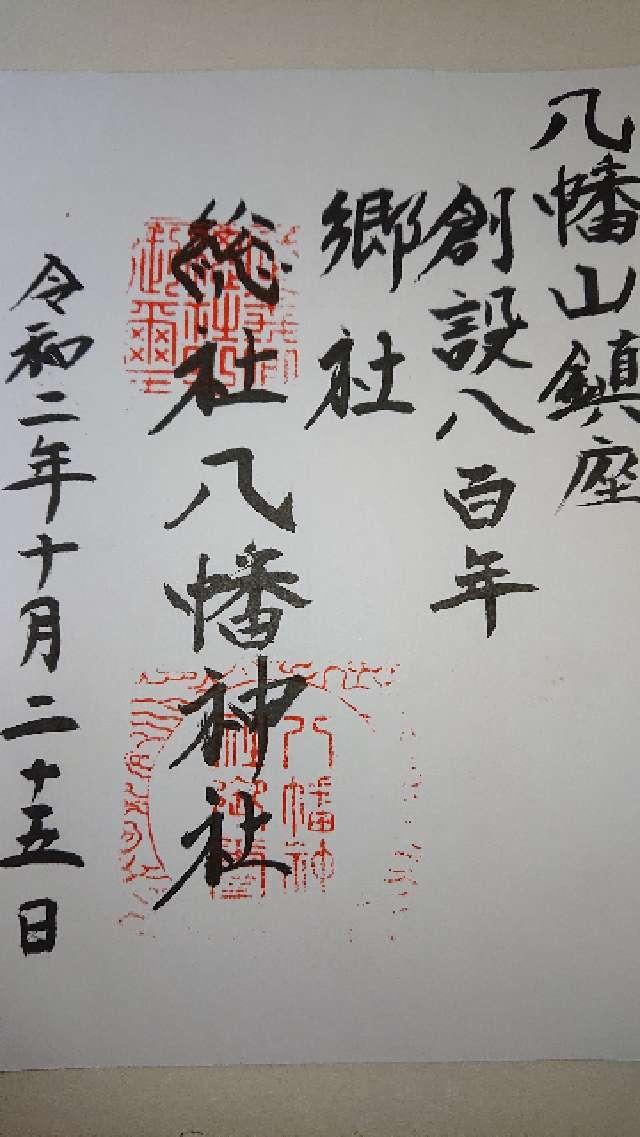 八幡山鎮座
創設八百年
郷社
総社八幡神社
八幡神
社
令和二年十月二十五日